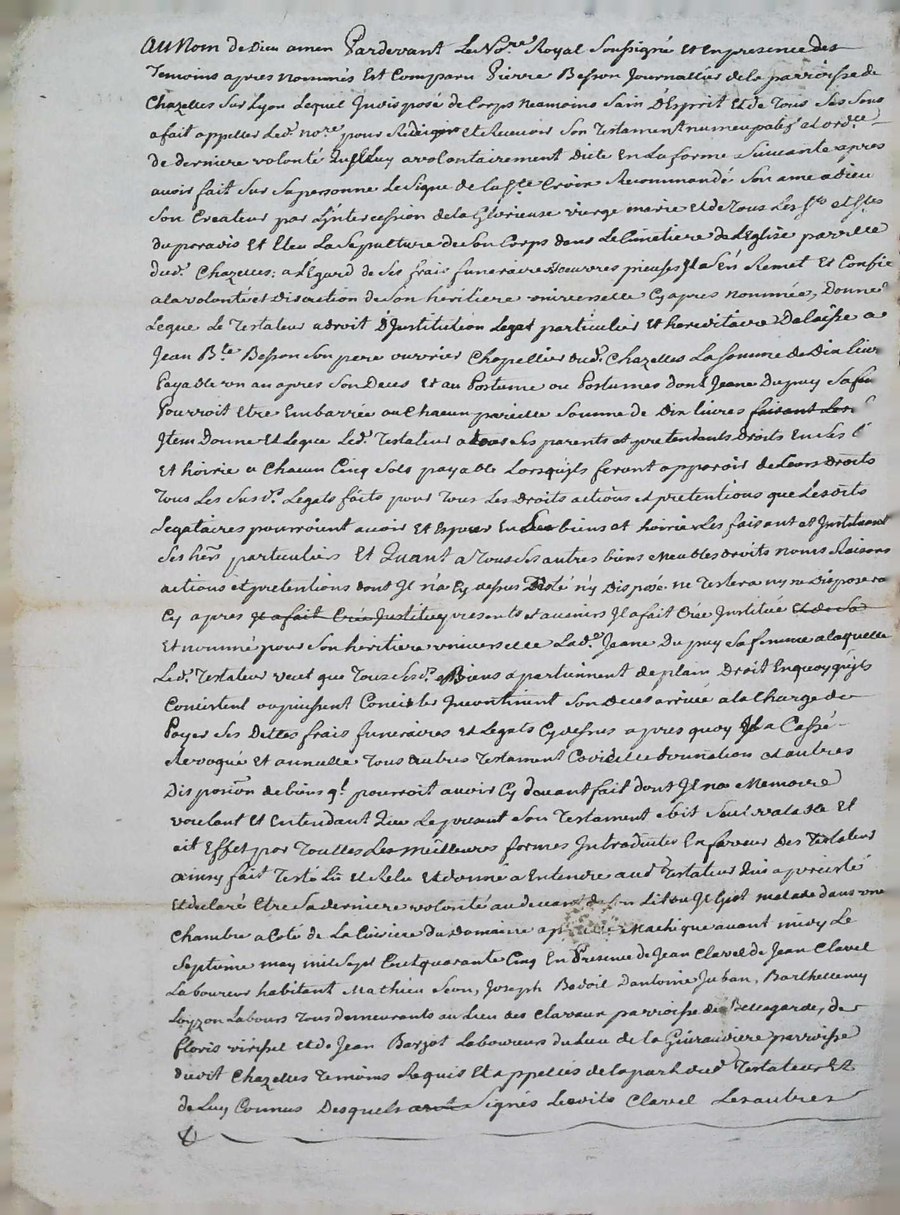 Au Nom de Dieu amen Pardevant Le No.re Royal Soussigné et en presence des
Temoins apres nommés Est Comparu Pierre Besson Journallier de la parroisse de
Chazelles Sur Lyon Lequel Indisposé de Corps neamoins Sain D'Esprit Et de Tous Ses Sens
a fait appeller Led. no.re pour Rediger et Recevoir Son Testament nuncupatif et ord.ce
de derniere volonté qu'il luy a volontairement Dicté En La forme Suivante apres
avoir fait Sur Sa personne Le Signe de la S.te Croix Recommandé Son ame a Dieu
Son Createur par L'intercession de la Glorieuse vierge marie Et de Tous Les S.ts et S.tes
du paravis Et Eleu La Sepulture de Son Corps dans Le Cimetiere de L'Eglise parr.lle
dud. Chazelles; a L'Egard de Ses frais funeraires Et oeuvres pieuses Il S'En Remet Et Confie
a la volonté et Discretion de Son heritiere universelle Cy apres nommée, Donne Et
Legue Le Testateur a droit D'Institution Legat particulier et hereditaire Delaisse a
Jean B.te Besson Son pere ouvrier Chapellier dud. Chazelles La Somme de Dix livres
Payable un an apres Son Deces Et au Postume ou Postumes dont Jeane Dupuy Sa fe
Pourroit Etre Embarrée a Chacun pareille Somme de Dix livres faisant Les
Item Donne Et Legue Led. Testateur a tous Ses parents et pretendants Droits En Ses
Et hoirie a Chacun Cinq Sols payable Lorsqu'ils feront apparoir de Leurs Droits
Tous Les Susd. Legats faits pour Tous Les Droits actions et pretentions que Lesdits
Legataires pourroient avoir Et Esperer En Ses biens et hoirie Les faisant et Instituant
Ses hers particuliers Et Quant a Tous Ses autres biens Meubles Droits noms Raisons
actions et pretentions dont Il n'a Cy dessus Testé n'y Disposé ne Testera ny ne Disposera
Cy apres Il a fait Créé Institué presents et avenirs Il a fait Créé Institué et de Sa
Et nommé pour Son heritiere universelle Lad. Jeane Dupuy Sa femme a laquelle
Led. Testateur veut que Tous Sesd. Biens apartiennent de plain Droit En quoy qu'ils
Concistent ou puissent Concister Incontinent Son Deces arrivé a la Charge de
Payer Ses Dettes frais funeraires et Legats Cy dessus apres quoy Il a Cassé
Revoqué Et annullé Tous autres Testament Codicille donnation et autres
Disposi.on de biens q.l pourroit avoir Cy devant fait dont Il n'a Memoire
voulant Et Entendant Que Le present Son Testament Soit Seul valable Et
ait Effet par Touttes Les Meilleures formes Introduites En faveur Des Testateurs
ainsy fait Testé Lû et Relu Et donné a Entendre aud. Testateur qui a persisté
Et declaré Etre Sa derniere volonté au devant de Son Lit ou Il Gist malade dans une
Chambre a Coté de La Cuisine du Domaine Machi que avant midy Le
Septieme may mil Sept Cent quarante Cinq En Presence de Jean Clavel de Jean Clavel
Laboureur habitant Mathieu Seon, Joseph Bodoil D'antoine Juban, Barthellemy
Loyzon Labours Tous demeurants au Lieu des Clavaux parroisse de Bellegarde, de
floris virissel et de Jean Barjot Laboureurs du Lieu de la Giraudiere parroisse
dudit Chazelles Temoins Requis Et appellés de la part dud. Testateur Et
de Luy Connus Desquels ont Signés Ledits Clavel Les autres